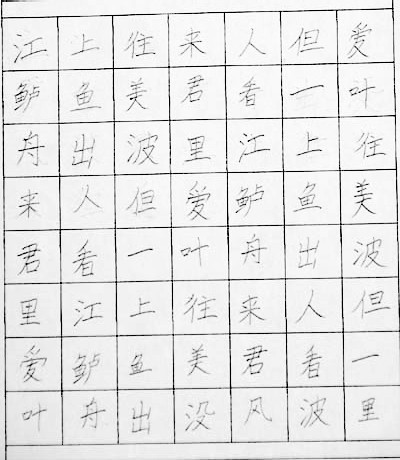 江上往来人但爱
鲈鱼美君看一叶
舟出波里江上往
来人但爱鲈鱼美
君看一叶舟出波
里江上往来人但
爱鲈鱼美君看一
叶舟出没风波里